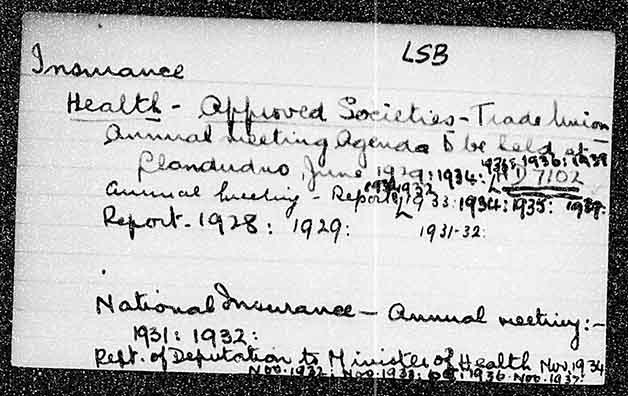 LSB
Insurance
Health - Approved Societies - Trade Union
Annual meeting Agenda to be held at
Llandudno, June 1929: 1934: 1935: 1936: 1938
D 7102
Annual Meeting - Reports 1932 1933: 1934: 1935: 1937:
Report - 1928: 1929: 1931-32:
National Insurance - Annual meeting:-
1931: 1932:
Rept. of Deputation to Minister of Health Nov. 1934
Nov. 1932: Nov. 1933: 1936 Nov. 1937: